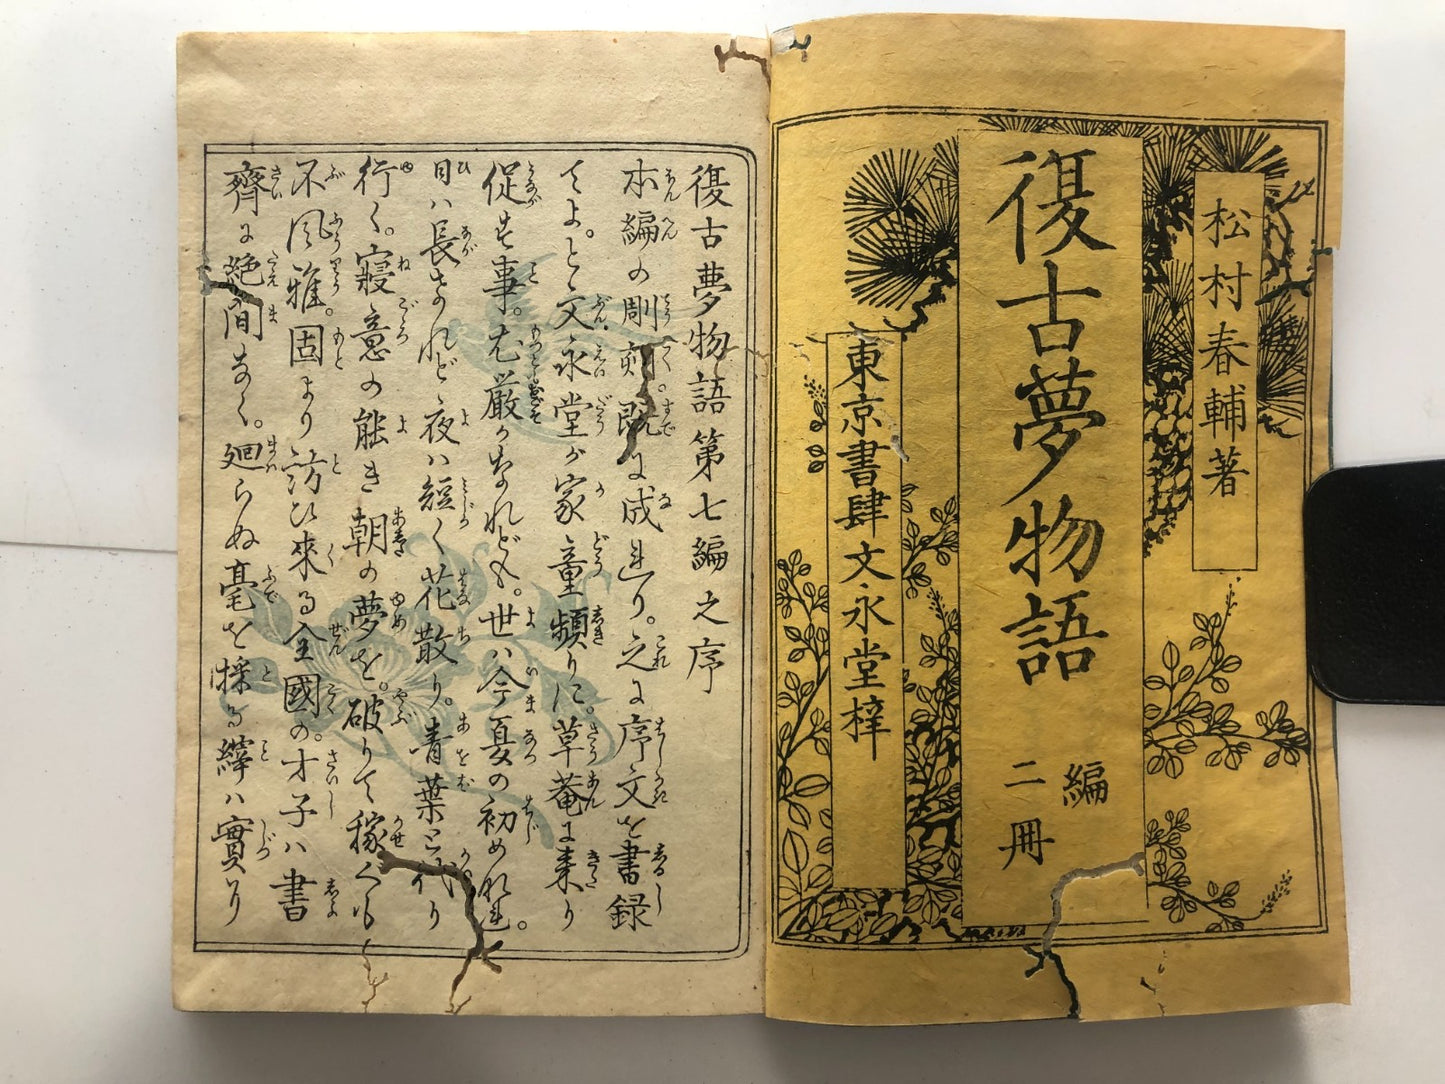 松村春輔著
復古夢物語
編
二冊
東京書肆文永堂梓
復古夢物語第七編之序
本編の彫刻。既に成れり。之に序文を書録
てよ。と文永堂が家童頻りに。草菴に来り
促す事。尤厳かなれども。世ハ今夏の初めなれ。
日ハ長きなれど、夜ハ短く花散り。青葉と代り
行く。寝意の能き朝の夢を。破りて稼くも
不風雅。固より訪ひ來る全國の。才子ハ書
齊に絶間なく。廻らぬ毫を採る繹ハ實り